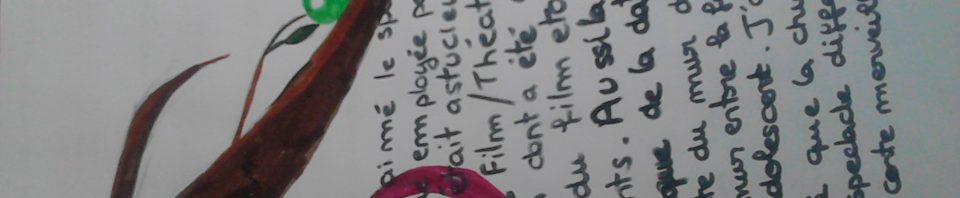 aimé le sp
employée p
ait astucieu
Film/Théât
dont a été
du film et
nts. Aussi la
que de la dat
te du mur d
mur entre la f
dolescent. J'
é que la chu
spectacle diffé
conte merveil